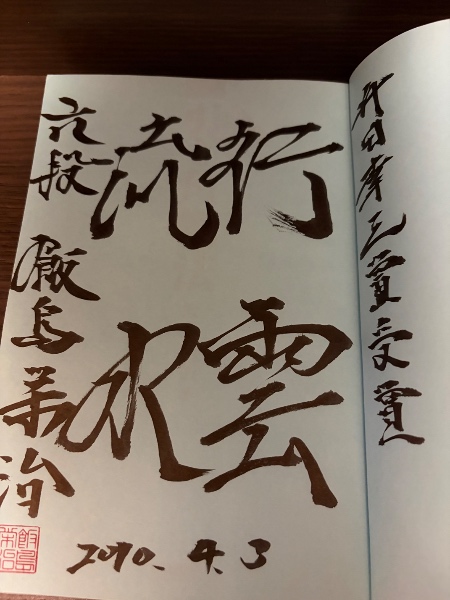 升田幸三賞受賞
行雲
流水
六段 飯島栄治
2010. 4. 3
飯島
栄治